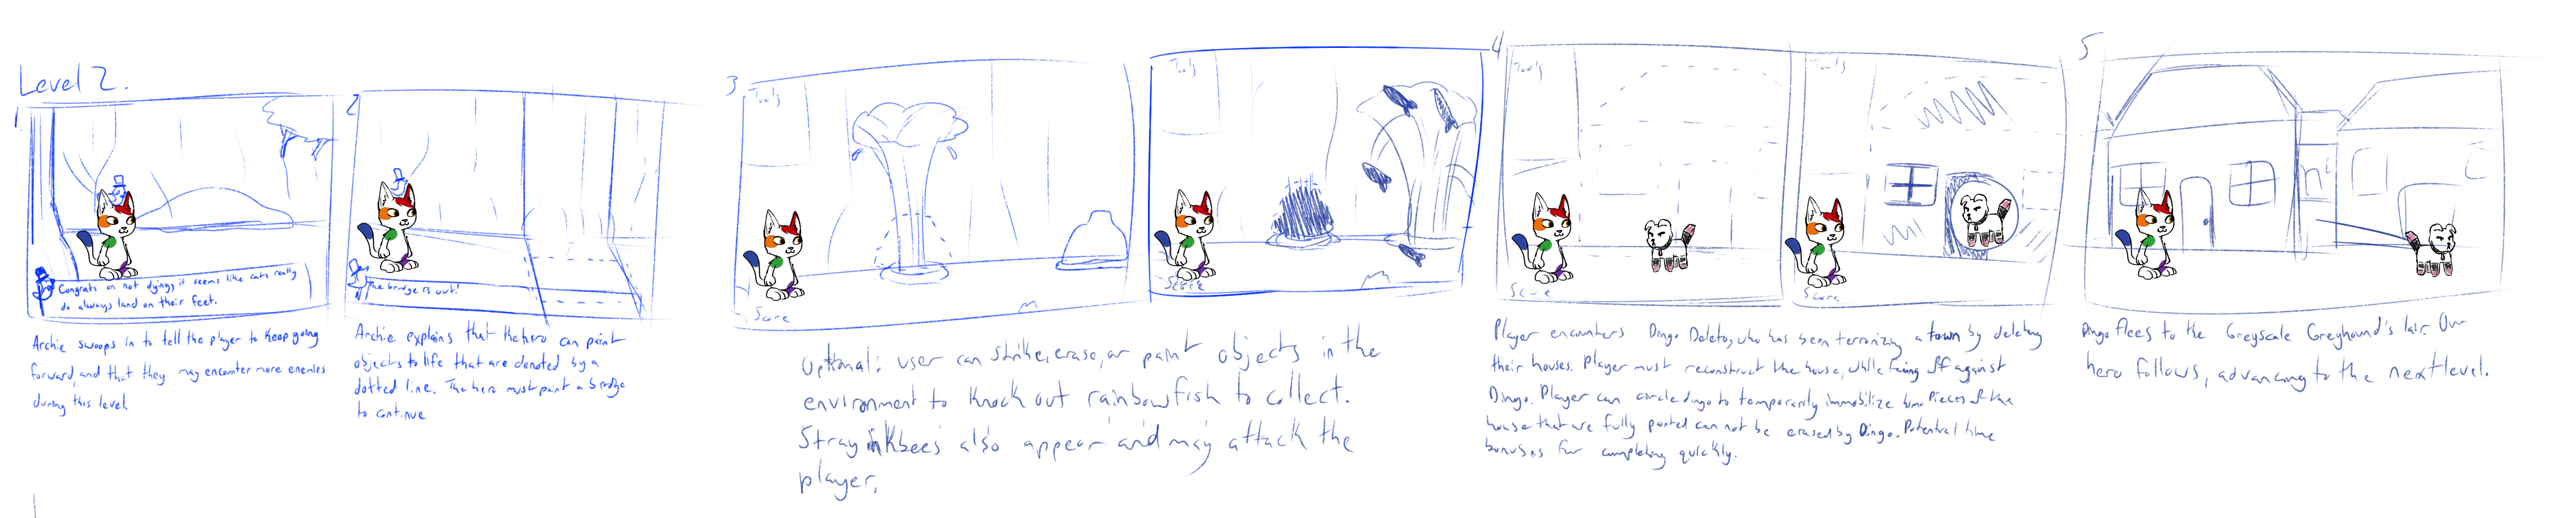 Level 2.
1.
Congrats on not dying, it seems like cats really
do always land on their feet.
Archie swoops in to tell the player to keep going
forward, and that they may encounter more enemies
during this level.
2
The bridge is out!
Archie explains that the hero can paint
objects to life that are denoted by a
dotted line. The hero must paint a bridge
to continue
3
Tools
Score
Tools
Score
Optional: user can strike, erase, or paint objects in the
environment to knock out rainbowfish to collect.
Stray inkbees also appear and may attack the
player.
4
Tools
Score
Tools
Score
Player encounters Dingo Deleto, who has been terrorizing a town by deleting
their houses. Player must reconstruct the house, while facing off against
Dingo. Player can circle dingo to temporarily immobilize him. Pieces of the
house that are fully painted can not be erased by Dingo. Potential time
bonuses for completing quickly.
5
Dingo flees to the Greyscale Greyhound's lair. Our
hero follows, advancing to the next level.